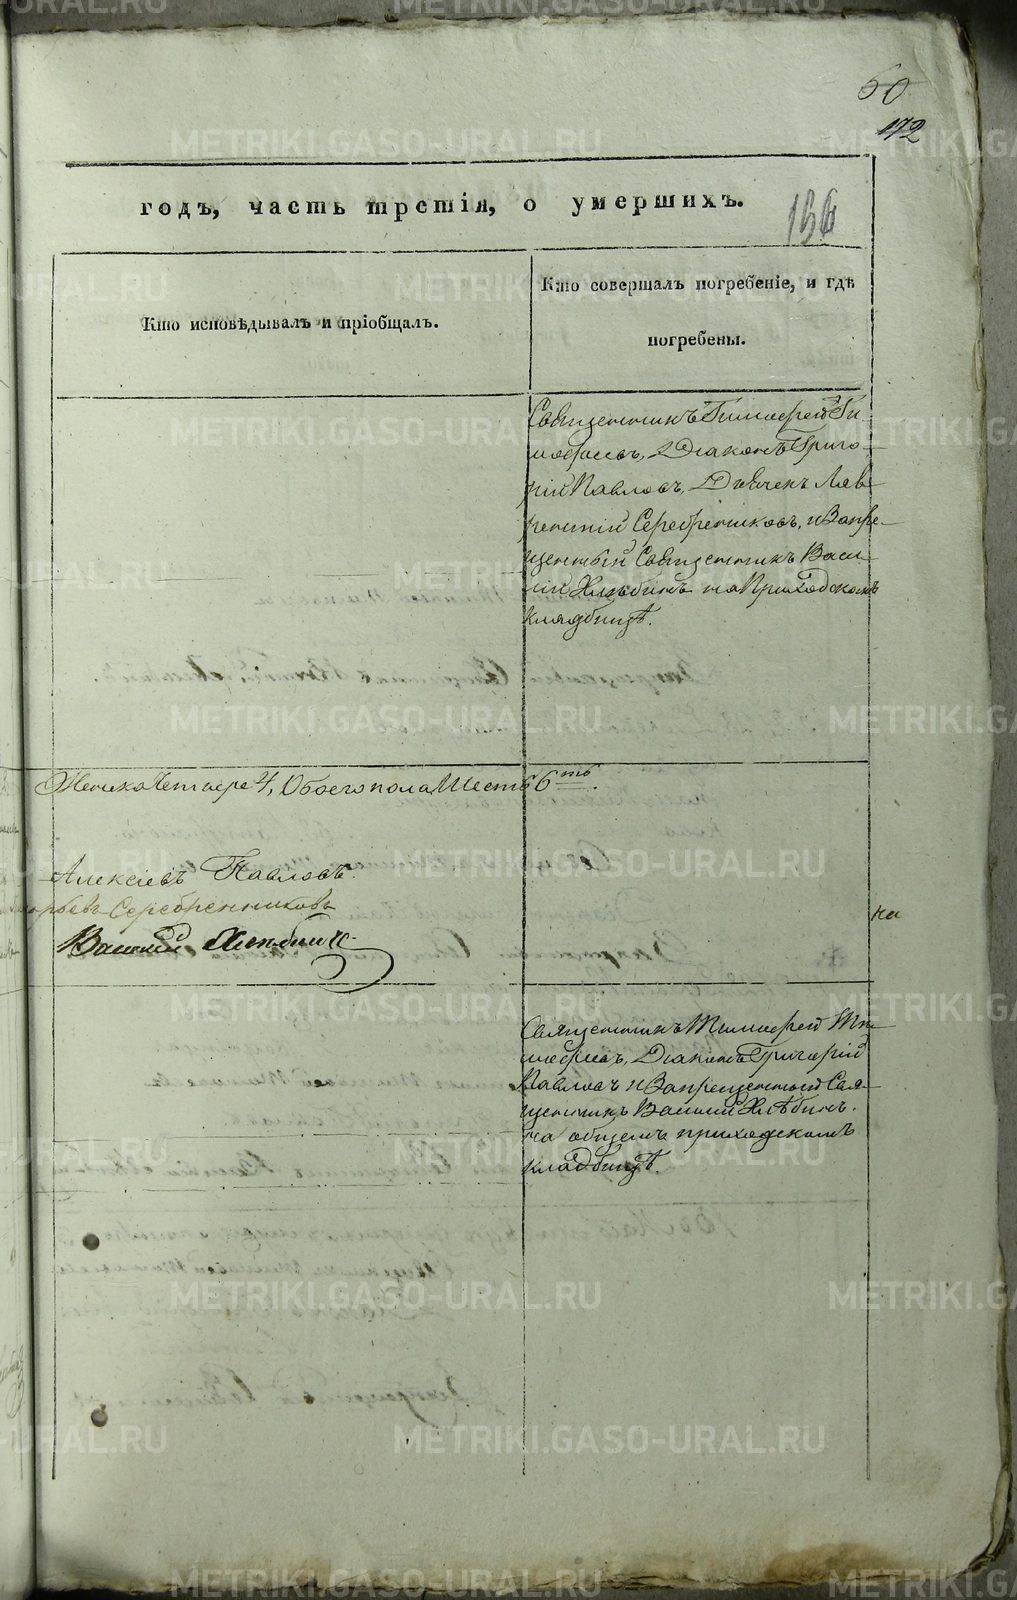 60
172
годъ, часть третія, о умершихъ.
Кто исповѣдывалъ и пріобщалъ.
Кто совершалъ погребеніе, и гдѣ
погребены.
Священникъ Тимофей Ти-
мофеевъ, Діаконъ Григо-
рій Павловъ, Дьячекъ Лав-
рентій Серебренниковъ, и Запре-
щенный Священникъ Васи-
лій Хлѣбинъ на Приходскомъ
кладбищѣ.
Женска Четыре 4, Обоего пола Шесть 6ть.
Алексіевъ Павловъ.
Серебренниковъ
Василій Хлѣбинъ
ка
Священникъ Тимофей Ти-
мофеевъ, Діаконъ Григорій
Павловъ и Запрещенный Свя-
щенникъ Василій Хлѣбинъ.
на общемъ приходскомъ
кладбищѣ.
METRIKI.GASO-URAL.RU